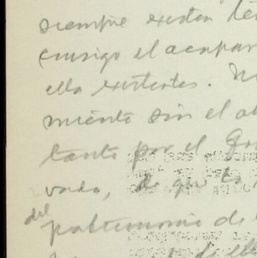 siempre existen
consigo el acapar
ella existentes. N
miento sin el a
tanto por el Go
vado, de que
del
patrimonio de